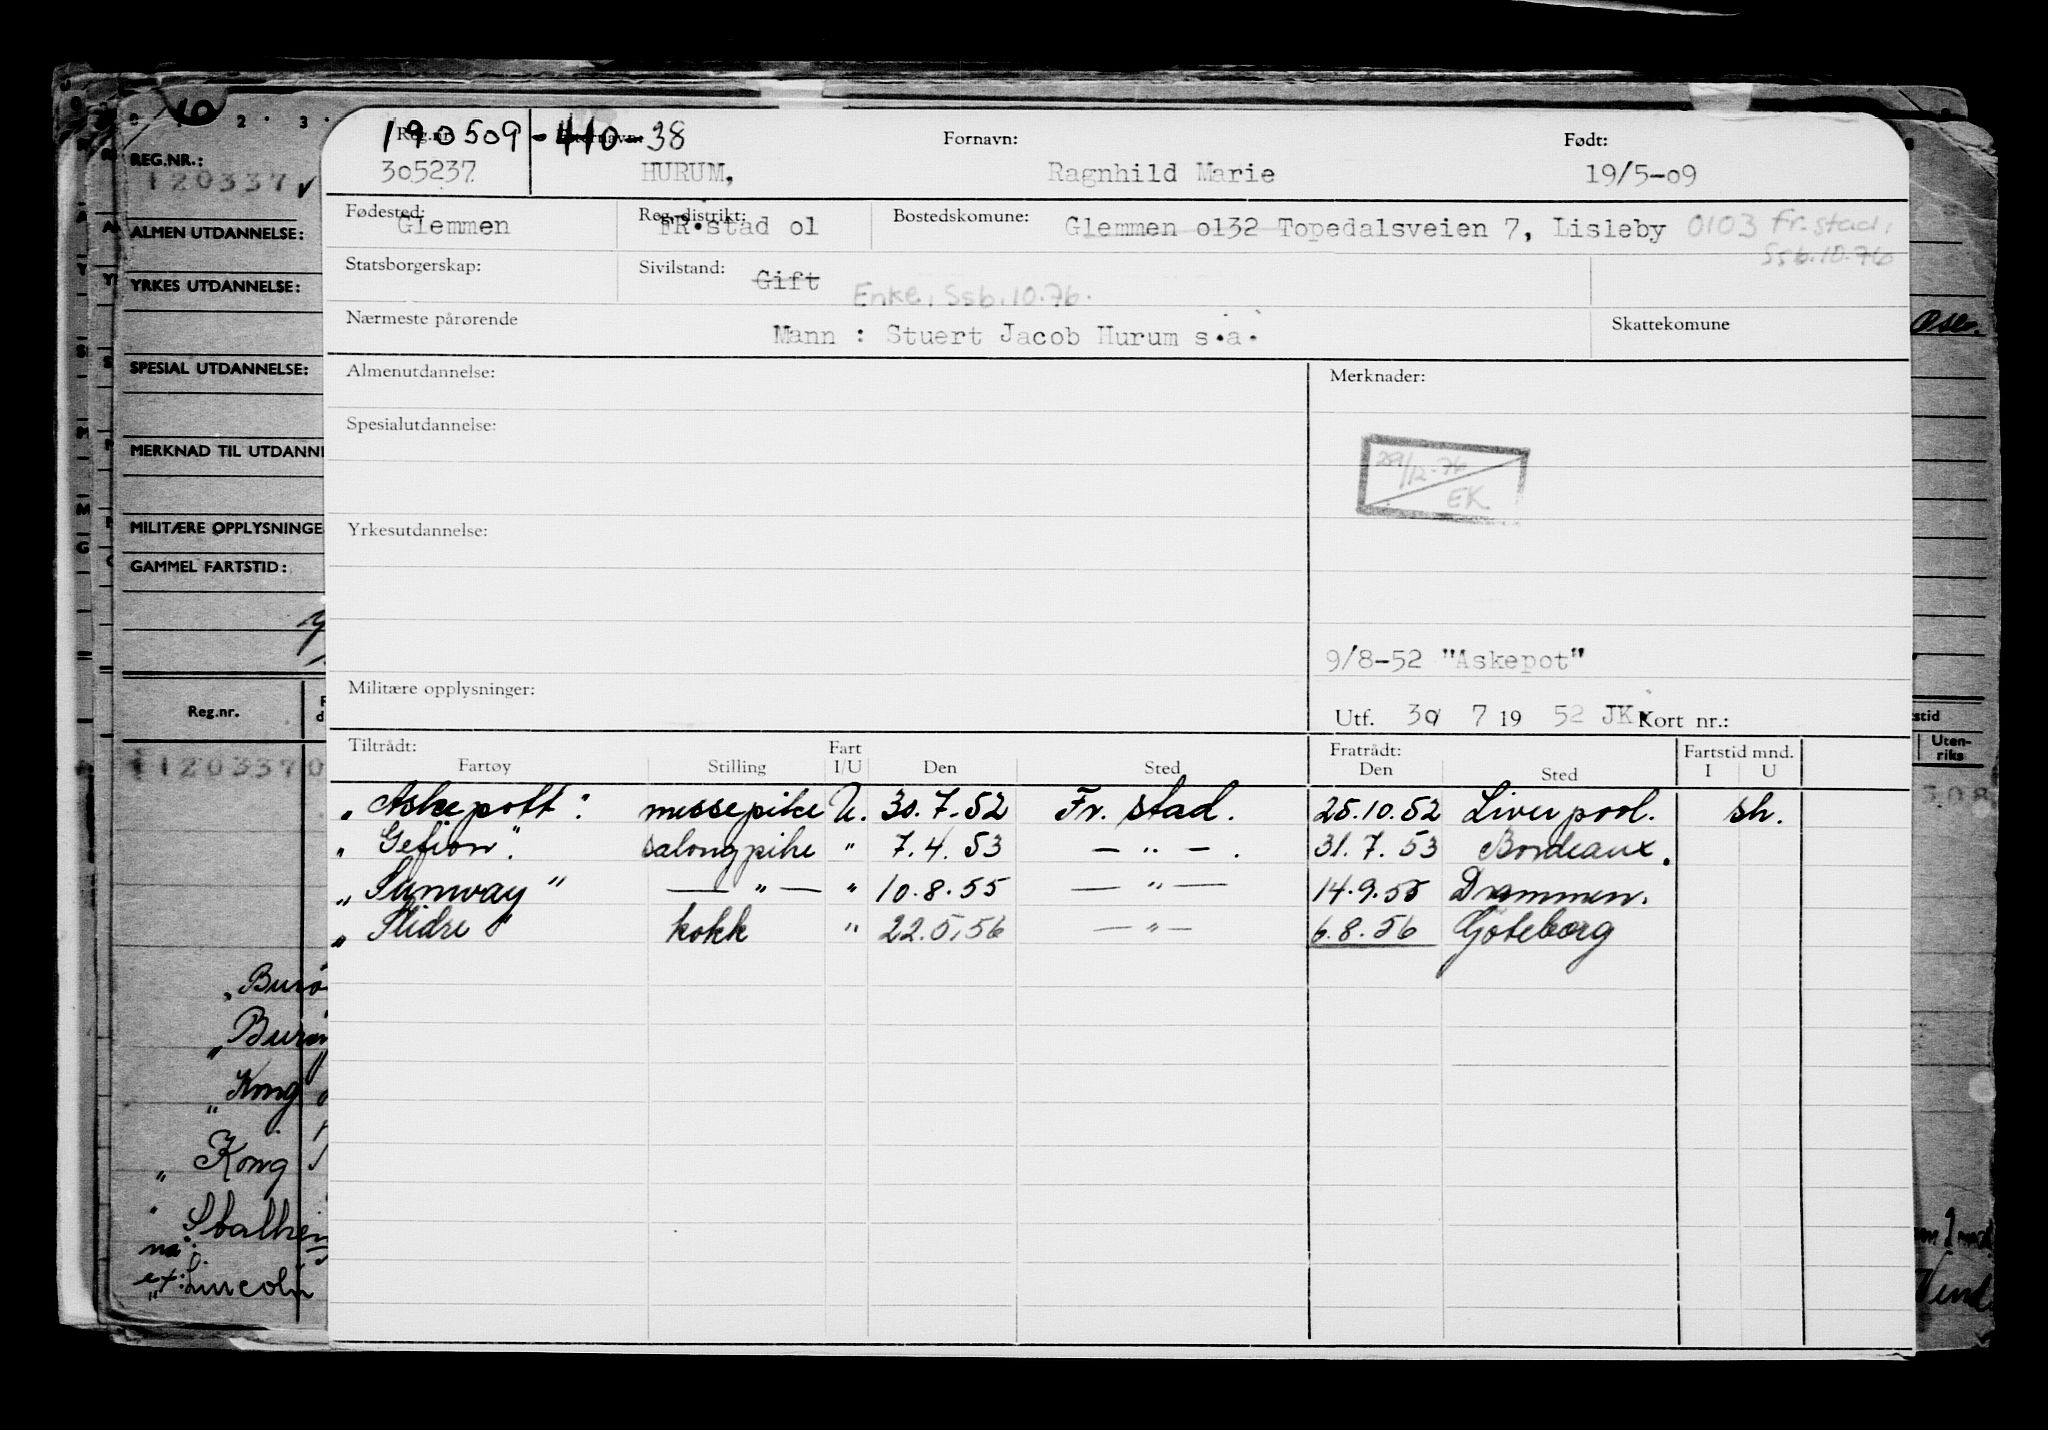 10
0 1 2 · 3 ·
190509 - 410 - 38
Reg.nr. Etternavn: Fornavn: Født:
305237 HURUM, Ragnhild Marie 19/5-09
REG.NR.:
120337 ✓
Fødested: Reg. distrikt: Bostedskomune:
Glemmen FR.stad 01 Glemmen 0132 Topedalsveien 7, Lisleby 0103 Fr.stad,
Ssb.10.76
ALMEN UTDANNELSE:
Statsborgerskap: Sivilstand: Gift
Enke, Ssb.10.76.
YRKES UTDANNELSE:
Nærmeste pårørende Skattekomune
Mann : Stuert Jacob Hurum s.a.
SPESIAL UTDANNELSE:
Almenutdannelse: Merknader:
Spesialutdannelse:
MERKNAD TIL UTDANN
29/12-76
EK
MILITÆRE OPPLYSNINGE
Yrkesutdannelse:
GAMMEL FARTSTID:
9/8-52 "Askepot"
Militære opplysninger:
Utf. 30/ 7 19 52 JK. Kort nr.:
Reg.nr.
stid
Uten-
riks
Tiltrådt: Fart Fratrådt: Fartstid mnd.
Fartøy Stilling I/U Den Sted Den Sted I U
1120337 0
308
„Askepott": messepike U. 30.7.52 Fr. stad. 25.10.52 Liverpool. sh.
„Gefion". salongpike " 7.4.53 — " — . 31.7.53 Bordeaux.
„Sunway" — " — " 10.8.55 — " — 14.9.55 Drammen.
„Slidre" kokk " 22.5.56 — " — 6.8.56 Göteborg
„Kong
„Kong
na:
ex: Lincoln